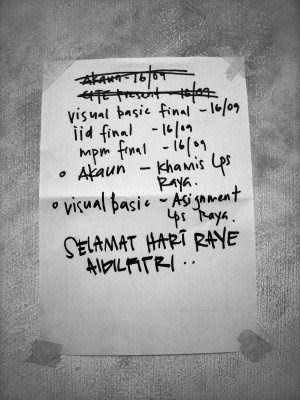 Akaun - 16/09
CITC Present - 16/09
visual basic final - 16/09
iid final - 16/09
mpm final - 16/09
Akaun - Khamis Lps
Raya.
visual basic - Asignment
Lps Raya.
SELAMAT HARI RAYE
AIDILFITRI ..